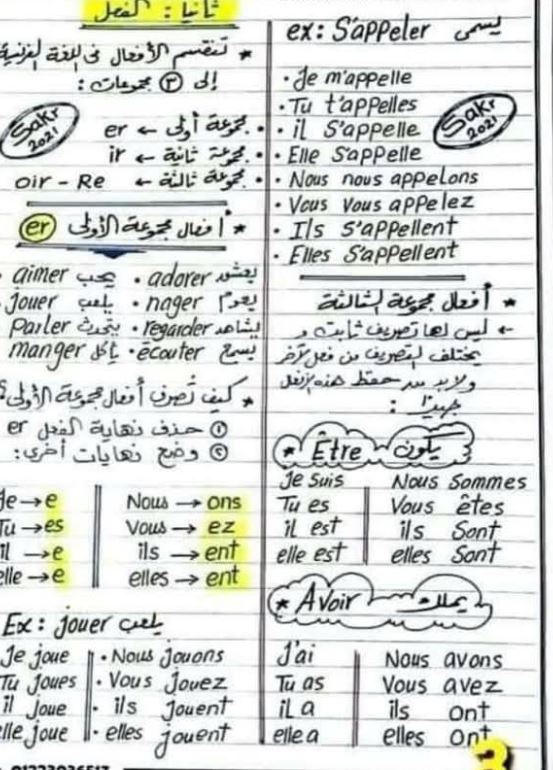 ثانيا : الفعل
* تنقسم الأفعال فى اللغة الفرنسية
إلى ٣ مجموعات :
Sakr
2021
• مجموعة أولى ← er
• مجموعة ثانية ← ir
• مجموعة ثالثة ← oir - Re
* أفعال مجموعة الأولى er
aimer يحب • adorer يعشق
Jouer يلعب • nager يعوم
Parler يتحدث • regarder يشاهد
manger يأكل • écouter يسمع
* كيف نصرف أفعال مجموعة الأولى؟
① حذف نهاية الفعل er
② وضع نهايات أخرى :
Je → e
Tu → es
il → e
elle → e
Nous → ons
Vous → ez
ils → ent
elles → ent
Ex : jouer يلعب
Je joue
Tu joues
il joue
elle joue
• Nous jouons
• Vous jouez
• ils jouent
• elles jouent
ex : S'appeler يسمى
• Je m'appelle
• Tu t'appelles
• il S'appelle
• Elle S'appelle
• Nous nous appelons
• Vous vous appelez
• Ils S'appellent
• Elles S'appellent
Sakr
2021
* أفعال مجموعة الثالثة
← ليس لها تصريف ثابت و
يختلف التصريف من فعل لآخر
ولابد من حفظ هذه الأفعال
جيدًا :
* Être يكون
Je Suis
Tu es
il est
elle est
Nous Sommes
Vous êtes
ils Sont
elles Sont
* Avoir يملك
J'ai
Tu as
il a
elle a
Nous avons
Vous avez
ils ont
elles ont
3